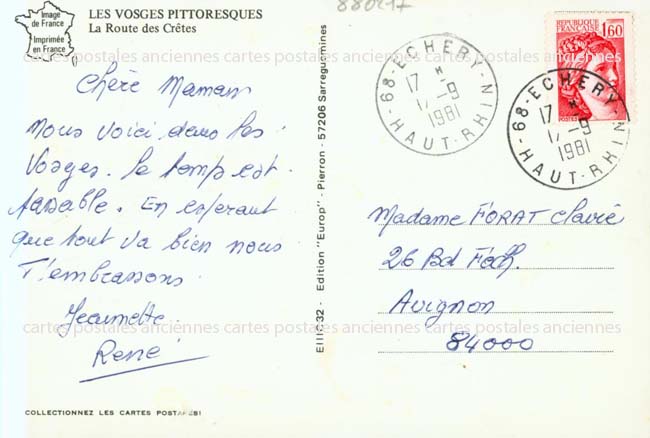 Image
de France
Imprimée
en France
LES VOSGES PITTORESQUES
La Route des Crêtes
Chère Maman
Nous voici dans les
Vosges. le temps est
passable. En esperant
que tout va bien nous
T'embrassons
Jeannette
René
COLLECTIONNEZ LES CARTES POSTALES!
EIII C 32 - Edition "Europ" - Pierron - 57206 Sarreguemines
88021
68 - ECHERY -
17 H
17 -9
1981
HAUT-RHIN
REPUBLIQUE
FRANÇAISE
1,60
POSTES
68 - ECHERY -
17 H
17 -9
1981
HAUT-RHIN
Madame FORAT
26 Bd Foch.
Avignon
84000
cartes postales anciennes cartes postales anciennes cartes postales anciennes cartes postales anciennes